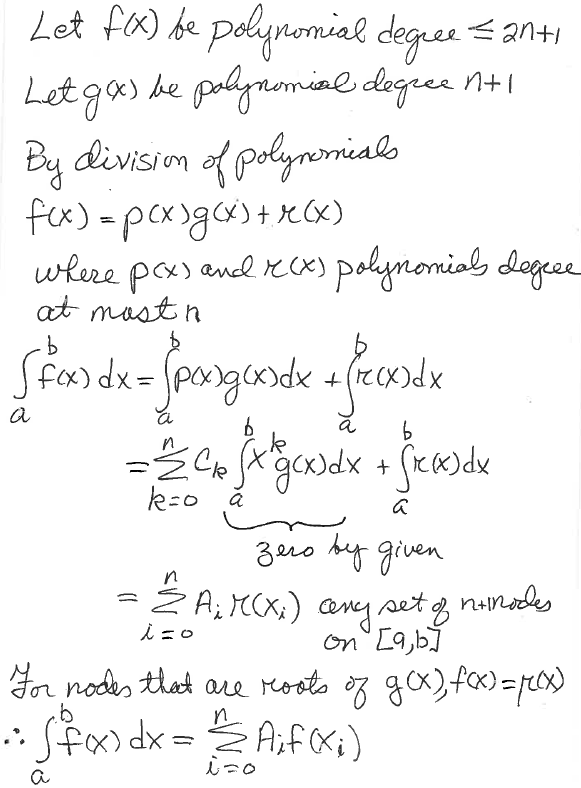 Let f(x) be polynomial degree ≤ 2n+1
Let g(x) be polynomial degree n+1
By division of polynomials
f(x) = p(x)g(x) + r(x)
where p(x) and r(x) polynomials degree
at most n
∫_a^b f(x) dx = ∫_a^b p(x)g(x)dx + ∫_a^b r(x)dx
= ∑_{k=0}^n C_k ∫_a^b x^k g(x)dx + ∫_a^b r(x)dx
zero by given
= ∑_{i=0}^n A_i r(x_i) any set of n+1 nodes
on [a,b]
For nodes that are roots of g(x), f(x) = r(x)
∴ ∫_a^b f(x) dx = ∑_{i=0}^n A_i f(x_i)